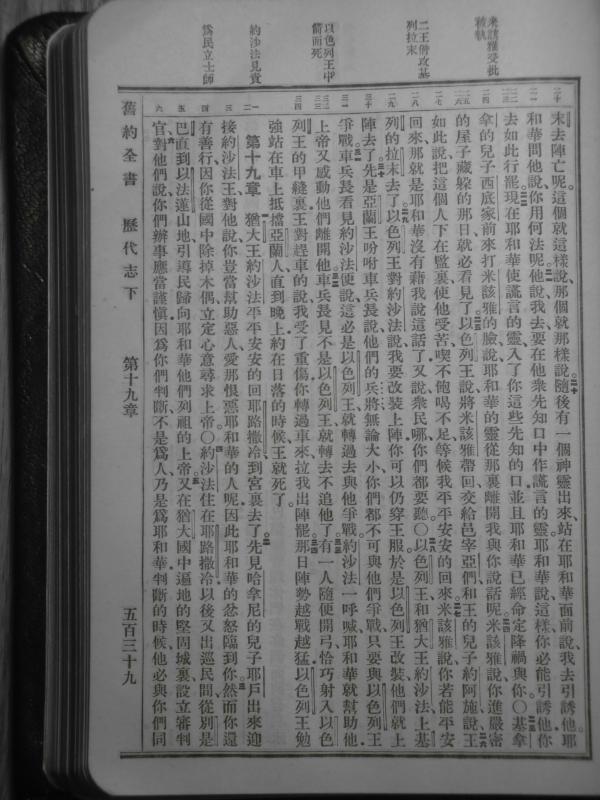 米該雅受批
頰執
二王偕攻基
列拉末
以色列王中
箭而死
約沙法見責
爲民立士師
末去陣亡呢這個就這樣說那個就那樣說隨後有一個神靈出來站在耶和華面前說我去引誘他耶
和華問他說你用何法呢他說我去要在他衆先知口中作謊言的靈耶和華說這樣你必能引誘他你
去如此行罷現在耶和華使謊言的靈入了你這些先知的口並且耶和華已經命定降禍與你〇基拿
拿的兒子西底家前來打米該雅的臉說耶和華的靈從那裏離開我與你說話呢米該雅說你進嚴密
的屋子藏躱的那日就必看見了以色列王說將米該雅帶回交給邑宰亞們和王的兒子約阿施說王
如此說把這個人下在監裏使他受苦喫不飽喝不足等候我平平安安的回來米該雅說你若能平安
回來那就是耶和華沒有藉我說這話了又說衆民哪你們都要聽〇以色列王和猶大王約沙法上基
列的拉末去了以色列王對約沙法說我要改裝上陣你可以仍穿王服於是以色列王改裝他們就上
陣去了先是亞蘭王吩咐車兵長說他們的兵將無論大小你們都不可與他們爭戰只要與以色列王
爭戰車兵長看見約沙法便說這必是以色列王就轉過去與他爭戰約沙法一呼喊耶和華就幫助他
上帝又感動他們離開他車兵長見不是以色列王就轉去不追他了有一人隨便開弓恰巧射入以色
列王的甲縫裏王對趕車的說我受了重傷你轉過車來拉我出陣罷那日陣勢越戰越猛以色列王勉
強站在車上抵擋亞蘭人直到晚上約在日落的時候王就死了
第十九章 猶大王約沙法平平安安的回耶路撒冷到宮裏去了先見哈拿尼的兒子耶戶出來迎
接約沙法王對他說你豈當幫助惡人愛那恨惡耶和華的人呢因此耶和華的忿怒臨到你然而你還
有善行因你從國中除掉木偶立定心意尋求上帝〇約沙法住在耶路撒冷以後又出巡民間從別是
巴直到以法蓮山地引導民歸向耶和華他們列祖的上帝又在猶大國中遍地的堅固城裏設立審判
官對他們說你們辦事應當謹慎因爲你們判斷不是爲人乃是爲耶和華判斷的時候他必與你們同
舊約全書 歷代志下 第十九章 五百三十九